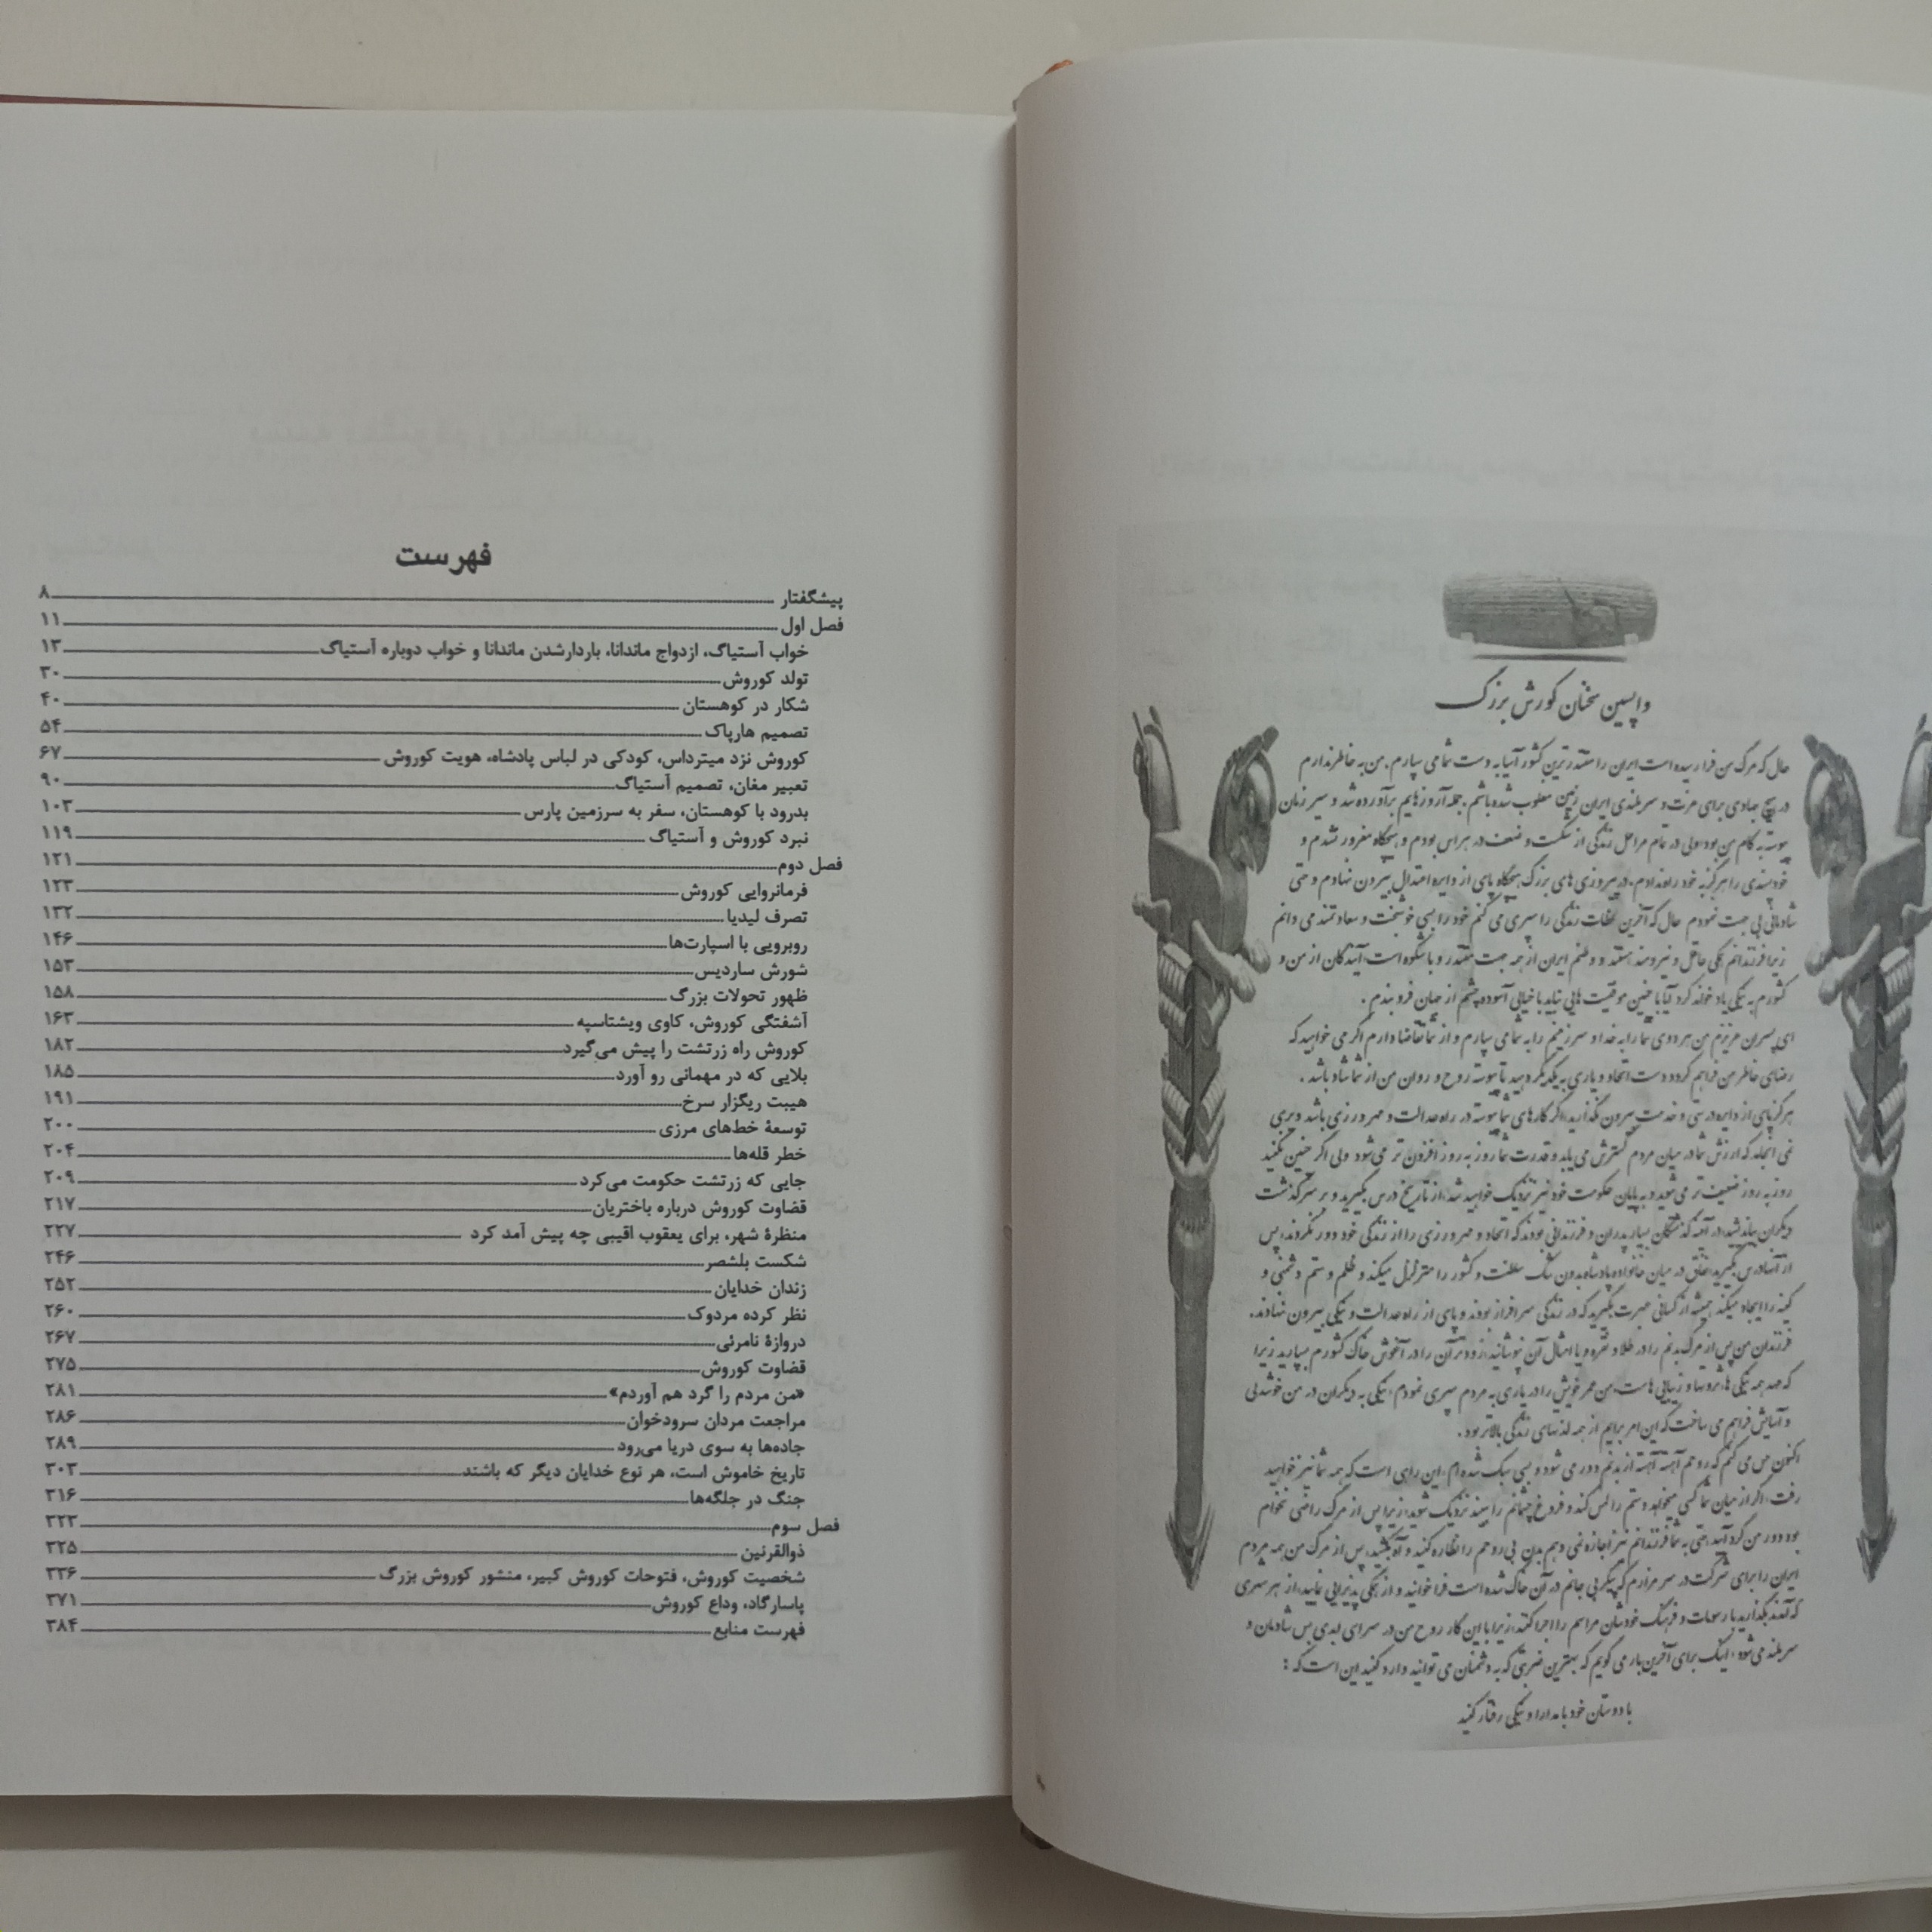 واپسین سخنان کورش بزرگ
حال که مرگ من فرا رسیده است ایران را مقتدرترین کشور آسیا به دست شما می سپارم. من به خاطر ندارم
در هیچ جهادی برای عزت و سربلندی ایران زمین مغلوب شده باشم. جمله آرزوهایم برآورده شد و سیر زمان
پیوسته به کام من بود، ولی در تمام مراحل زندگی از شکست و ضعف در هراس بودم و هیچگاه مغرور نشدم و
خودپسندی را هرگز به خود راه ندادم. در پیروزی های بزرگ هیچگاه پای از دایره اعتدال بیرون ننهادم و حتی
شادمانی بی جهت ننمودم حال که آخرین لحظات زندگی را سپری می کنم خود را بسی خوشبخت و سعادتمند می دانم
زیرا فرزندانم همگی عاقل و نیرومند هستند و وطنم ایران از همه جهت مقتدر و با شکوه است، آیندگان از من و
کشورم به نیکی یاد خواهند کرد آیا با چنین موفقیت هایی نباید با خیالی آسوده چشم از جهان فرو بندم.
ای پسران عزیزم من هر دوی شما را به خدا و سرزمینم را به شما می سپارم و از شما تقاضا دارم اگر می خواهید که
رضای خاطر من فراهم گردد دست اتحاد و یاری به یکدیگر دهید تا پیوسته روح و روان من از شما شاد باشد.
هرگز پای از دایره درستی و خدمت بیرون نگذارید، اگر کارهای شما پیوسته در راه عدالت و مهرورزی باشد دیری
نمی انجامد که ارزش شما در میان مردم گسترش می یابد و قدرت شما روز به روز افزون تر می شود ولی اگر چنین نکنید
روز به روز ضعیف تر می شوید و به پایان حکومت خود نیز نزدیک خواهید شد، از تاریخ درس بگیرید و بر سرگذشت
دیگران بیاندیشید، در آینه گذشتگان بسیار پدران و فرزندانی بودند که اتحاد و مهرورزی را از زندگی خود دور نکردند، پس
از آنها درس بگیرید، نفاق در میان خانواده پادشاه بدون شک سلطنت و کشور را متزلزل میکند و ظلم و ستم و دشمنی و
کینه را ایجاد میکند همیشه از کسانی عبرت بگیرید که در زندگی سرافراز بودند و پای از راه عدالت و نیکی بیرون ننهادند.
فرزندان من پس از مرگ بدنم را در طلا و نقره و یا امثال آن نپوشانید، زودتر آن را در آغوش خاک کشورم بسپارید زیرا
که مهد همه نیکی ها، ثروتها و زیبایی هاست، من عمر خویش را در یاری به مردم سپری نمودم، نیکی به دیگران در من خوشدلی
و آسایش فراهم می ساخت که این امر برایم از همه لذتهای زندگی بالاتر بود.
اکنون حس می کنم که روحم آهسته آهسته از بدنم دور می شود و بسی سبک شده ام، این راهی است که همه شما نیز خواهید
رفت، اگر از میان شما کسی میخواهد دستم را لمس کند و فروغ چشمانم را ببیند نزدیک شوید، زیرا پس از مرگ راضی نخواهم
بود دور من گرد آیید، حتی به شما فرزندانم نیز اجازه نمی دهم بدن بی روحم را نظاره کنید و آه بکشید، پس از مرگ من همه مردم
ایران را برای شرکت در سر مزارم که پیکر بی جانم در آن خاک شده است فرا خوانید و از همگی پذیرایی نمایید، از هر سری
که آمدند بگذارید با رسومات و فرهنگ خودشان مراسم را اجرا کنند، زیرا با این کار روح من در سرای ابدی بس شادمان و
سربلند می شود، اینک برای آخرین بار می گویم که بهترین ضربتی که به دشمنان می توانید وارد کنید این است که:
با دوستان خود با مدارا و نیکی رفتار کنید
فهرست
پیشگفتار ۸
فصل اول ۱۱
خواب آستیاگ، ازدواج ماندانا، باردارشدن ماندانا و خواب دوباره آستیاگ ۱۳
تولد کوروش ۳۰
شکار در کوهستان ۴۰
تصمیم هارپاک ۵۴
کوروش نزد میترداس، کودکی در لباس پادشاه، هویت کوروش ۶۷
تعبیر مغان، تصمیم آستیاگ ۹۰
بدرود با کوهستان، سفر به سرزمین پارس ۱۰۳
نبرد کوروش و آستیاگ ۱۱۹
فصل دوم ۱۲۱
فرمانروایی کوروش ۱۲۳
تصرف لیدیا ۱۳۲
روبرویی با اسپارت‌ها ۱۴۶
شورش ساردیس ۱۵۳
ظهور تحولات بزرگ ۱۵۸
آشفتگی کوروش، کاوی ویشتاسپه ۱۶۳
کوروش راه زرتشت را پیش می‌گیرد ۱۸۲
بلایی که در مهمانی رو آورد ۱۸۵
هیبت ریگزار سرخ ۱۹۱
توسعهٔ خط‌های مرزی ۲۰۰
خطر قله‌ها ۲۰۴
جایی که زرتشت حکومت می‌کرد ۲۰۹
قضاوت کوروش درباره باختریان ۲۱۷
منظرهٔ شهر، برای یعقوب اقیبی چه پیش آمد کرد ۲۲۷
شکست بلشصر ۲۴۶
زندان خدایان ۲۵۲
نظر کرده مردوک ۲۶۰
دروازهٔ نامرئی ۲۶۷
قضاوت کوروش ۲۷۵
«من مردم را گرد هم آوردم» ۲۸۱
مراجعت مردان سرودخوان ۲۸۶
جاده‌ها به سوی دریا می‌رود ۲۸۹
تاریخ خاموش است، هر نوع خدایان دیگر که باشند ۳۰۳
جنگ در جلگه‌ها ۳۱۶
فصل سوم ۳۲۳
ذوالقرنین ۳۲۵
شخصیت کوروش، فتوحات کوروش کبیر، منشور کوروش بزرگ ۳۳۶
پاسارگاد، وداع کوروش ۳۷۱
فهرست منابع ۳۸۴